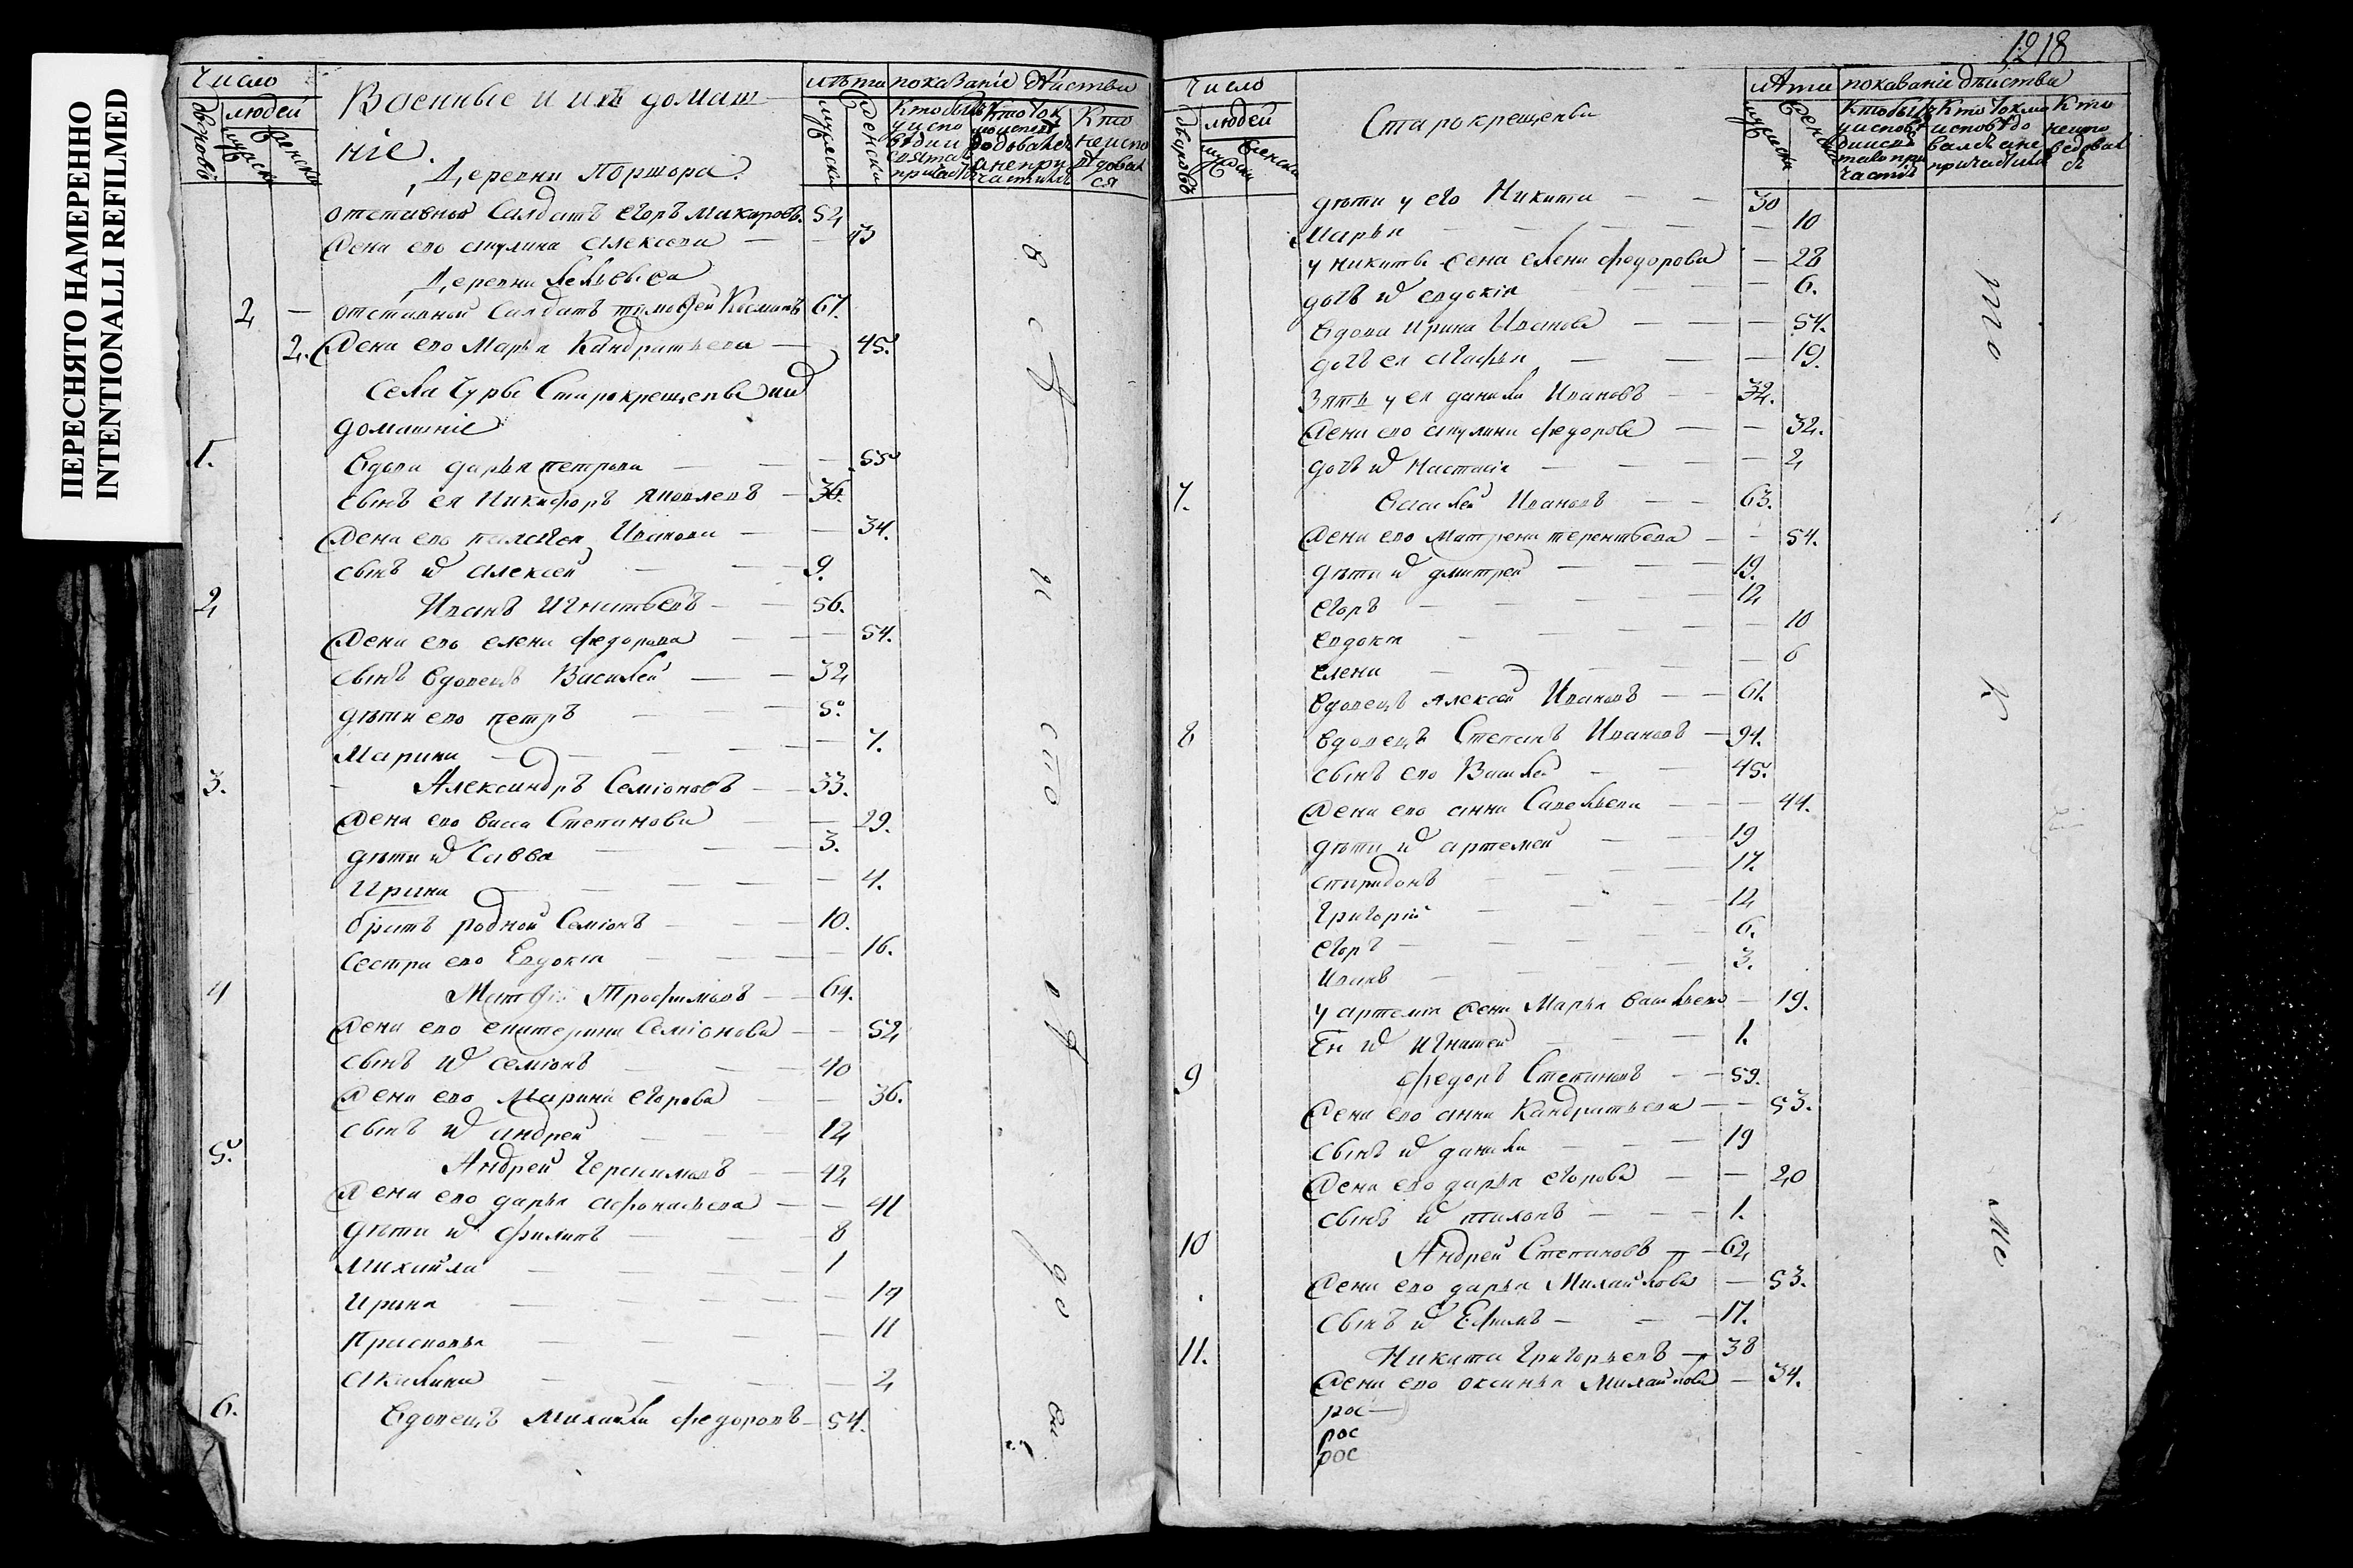 ПЕРЕСНЯТО НАМЕРЕННО
INTENTIONALLI REFILMED
Число
людей
Военные и ихъ домаш
ніе.
лѣта
показаніе дѣйства
Деревни Поршора
отставной Салдатъ Егоръ Макаровъ 52
Жена его акулина алексеева — 43
Деревни
2 — отставной Салдатъ тимофей Козминъ 67.
2. Жена его Марья Кандратьева — 45.
Села Чуры Старокрещены и ихъ
домашніе
1.
вдова дарья петрова — 55
сынъ ея Никифоръ Яковлевъ — 36.
Жена его пелагея Иванова — 34.
сынъ ихъ алексей — 9.
2
Иванъ Игнатьевъ — 56.
Жена его елена федорова — 54.
сынъ вдовецъ Василей — 32
дѣти его петръ — 5.
Марина — 7.
3.
Александръ Семіоновъ — 33.
Жена его васса Степанова — 29.
дѣти ихъ Савва — 3.
Ирина — 4.
братъ родной Семіонъ — 10.
Сестра его Евдокія — 16.
4
Матфей Трофимовъ — 64.
Жена его екатерина Семіонова — 52
сынъ ихъ семіонъ — 40
Жена его Марина егорова — 36.
сынъ ихъ андрей — 12
5.
Андрей Герасимовъ — 42
Жена его дарья афонасьева — 41
дѣти ихъ филипъ — 8
Михайла — 1
Ирина — 17
Прасковья — 11
акилина — 2
6.
Вдовецъ Михайла федоровъ — 54.
1218
Число
людей
Старокрещены
лѣта
показаніе дѣйства
дѣти у его Никита — 30
Марья — 10
у никиты жена елена федорова — 28
дочь ихъ евдокія — 6.
вдова ирина Иванова — 54.
дочь ея агафья — 19.
зять у ея данила Ивановъ — 32.
Жена его акулина федорова — 32.
дочь ихъ Настасія — 2
7.
василей Ивановъ — 63.
Жена его Матрена терентьева — 54.
дѣти ихъ дмитрей — 19.
егоръ — 12
евдокія — 10
елена — 6
вдовецъ алексей Ивановъ — 61.
8
вдовецъ Степанъ Ивановъ — 94.
сынъ его Василей — 45.
Жена его анна Савельева — 44.
дѣти ихъ артемей — 19
спиридонъ — 17.
Григорій — 12
егоръ — 6.
Иванъ — 3.
у артемія жена Марья васильева — 19.
Сн ихъ Игнатей — 1.
9
федоръ Степановъ — 59.
Жена его анна Кандратьева — 53.
сынъ ихъ данила — 19
Жена его дарья егорова — 20
сынъ ихъ тихонъ — 1.
10
Андрей Степановъ — 62
Жена его дарья Михайлова — 53.
сынъ ихъ Ефимъ — 17.
11.
Никита Григорьевъ — 38
Жена его оксинья Михайлова — 34.
рос
рос
рос